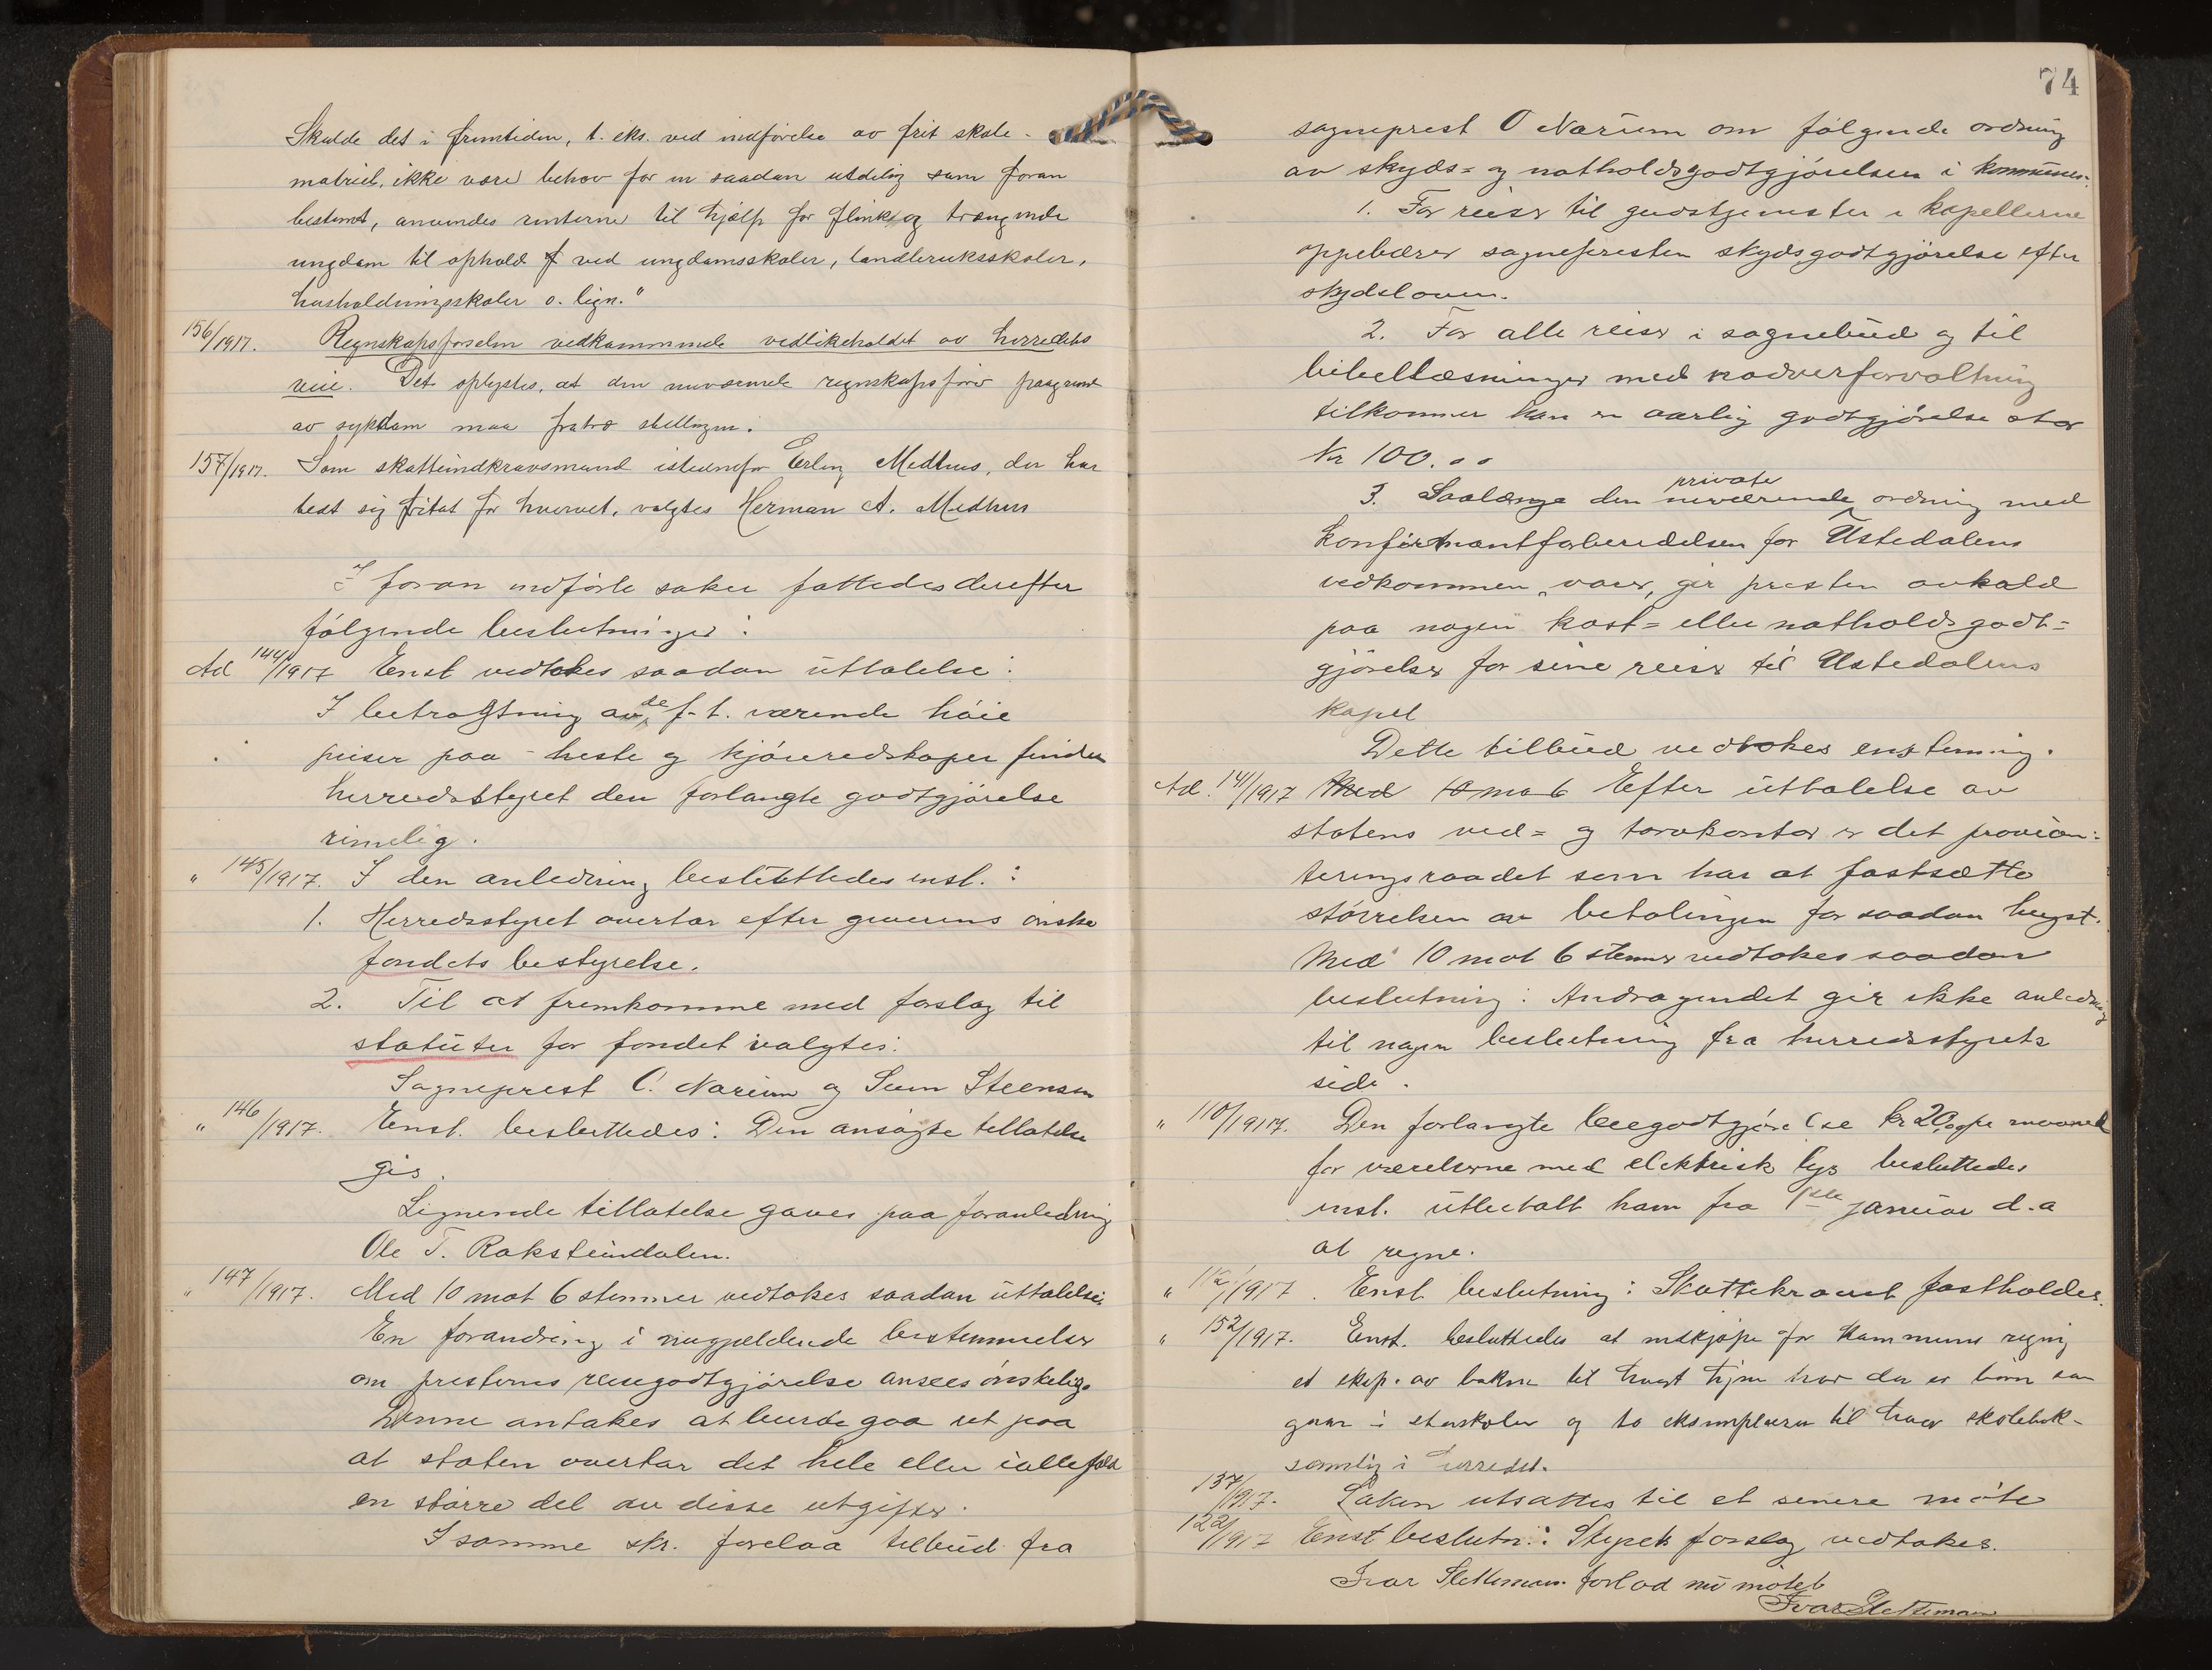 Skulde det i fremtiden, t. eks. ved indförelse av frit skole-
matriel, ikke være behov for en saadan utdeling som foran
bestemt, anvendes renterne til hjælp for flink og trængende
ungdom til ophold ved ungdomsskoler, landbruksskoler,
husholdningsskoler o. lign."
156/1917. Regnskapsförselen vedkommende vedlikeholdet av herredets
veie. Det oplystes, at den nuværende regnskapsförer paagrund
av sykdom maa fratræ stillingen.
157/1917. Som skatteindkrævsmand istedenfor Erling Medhus, der har
bedt sig fritat for hvervet, valgtes Herman A. Medhus
I foran indförte saker fattedes derefter
fölgende beslutninger:
Ad 144/1917 Enst vedtokes saadan uttalelse:
I betragtning av de f. t. værende höie
priser paa heste og kjöreredskaper finder
herredsstyret den forlangte godtgjörelse
rimelig.
" 145/1917. I den anledning besluttedes enst.:
1. Herredsstyret overtar efter giverens önske
fondets bestyrelse.
2. Til at fremkomme med forslag til
statuter for fondet valgtes:
Sogneprest O. Nærum og Steensen
" 146/1917. Enst. besluttedes: Den ansögte tillatelse
gis.
Lignende tillatelse gaves paa foranledning
Ole T. Raksteindalen.
" 147/1917. Med 10 mot 6 stemmer vedtokes saadan uttalelse:
En forandring i nugjeldende bestemmelser
om presternes reisegodtgjörelse ansees önskelig.
Denne antakes at burde gaa ut paa
at staten overtar det hele eller iallefald
en större del av disse utgifter.
I samme skr. forelaa tilbud fra
74
sogneprest O Nærum om fölgende ordning
av skyds= og natholdsgodtgjörelsen i kommunen:
1. For reiser til gudstjenester i kapellerne
oppebærer sognepresten skydsgodtgjörelse efter
skydsloven.
2. For alle reiser i sognebud og til
bibellæsninger med nadverforvaltning
tilkommer ham en aarlig godtgjörelse stor
Kr 100.00
private
3. Saalænge den nuværende ordning med
konfirmantforberedelsen for Ustedalens
vedkommen varer, gir presten avkald
paa nogen kost= eller natholdsgodt=
gjörelse for sine reiser til Ustedalens
kapel
Dette tilbud vedtokes enstemmig.
Ad. 141/1917 Med 10 mot 6 Efter uttalelse av
statens ved= og torvkontor er det provian=
teringsraadet som har at fastsætte
störrelsen av betalingen for saadan hugst.
Med 10 mot 6 stemmer vedtokes saadan
beslutning: Andragendet gir ikke anledning
til nogen beslutning fra herredsstyrets
side.
" 110/1917. Den forlangte leiegodtgjörelse kr 20,00 pr maaned
for værelserne med elektrisk lys besluttedes
enst. utbetalt ham fra 1ste januar d.a
at regne.
" 112/1917. Enst beslutning: Skattekravet fastholdes.
" 152/1917. Enst. besluttedes at indkjöpe for kommunens regning
et eksp. av boken til hvert hjem hvor der er börn som
gaar i storskolen og to eksemplarer til hver skolebok-
samling i herredet.
137/1917. Saken utsattes til et senere möte
122/1917 Enst beslutn.: Styrets forslag vedtokes.
Ivar Slettemoen forlod nu mötet
Ivar Slettemoen